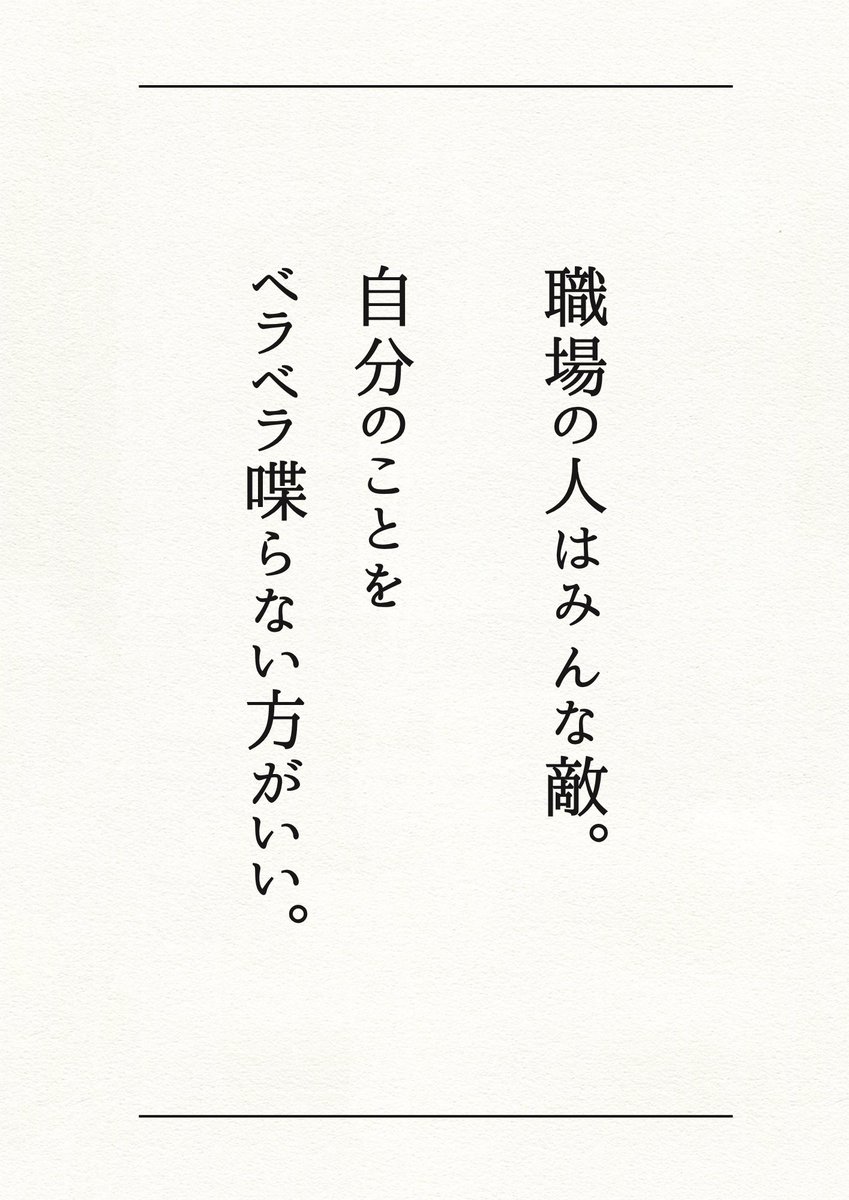 職場の人はみんな敵。
自分のことを
ベラベラ喋らない方がいい。